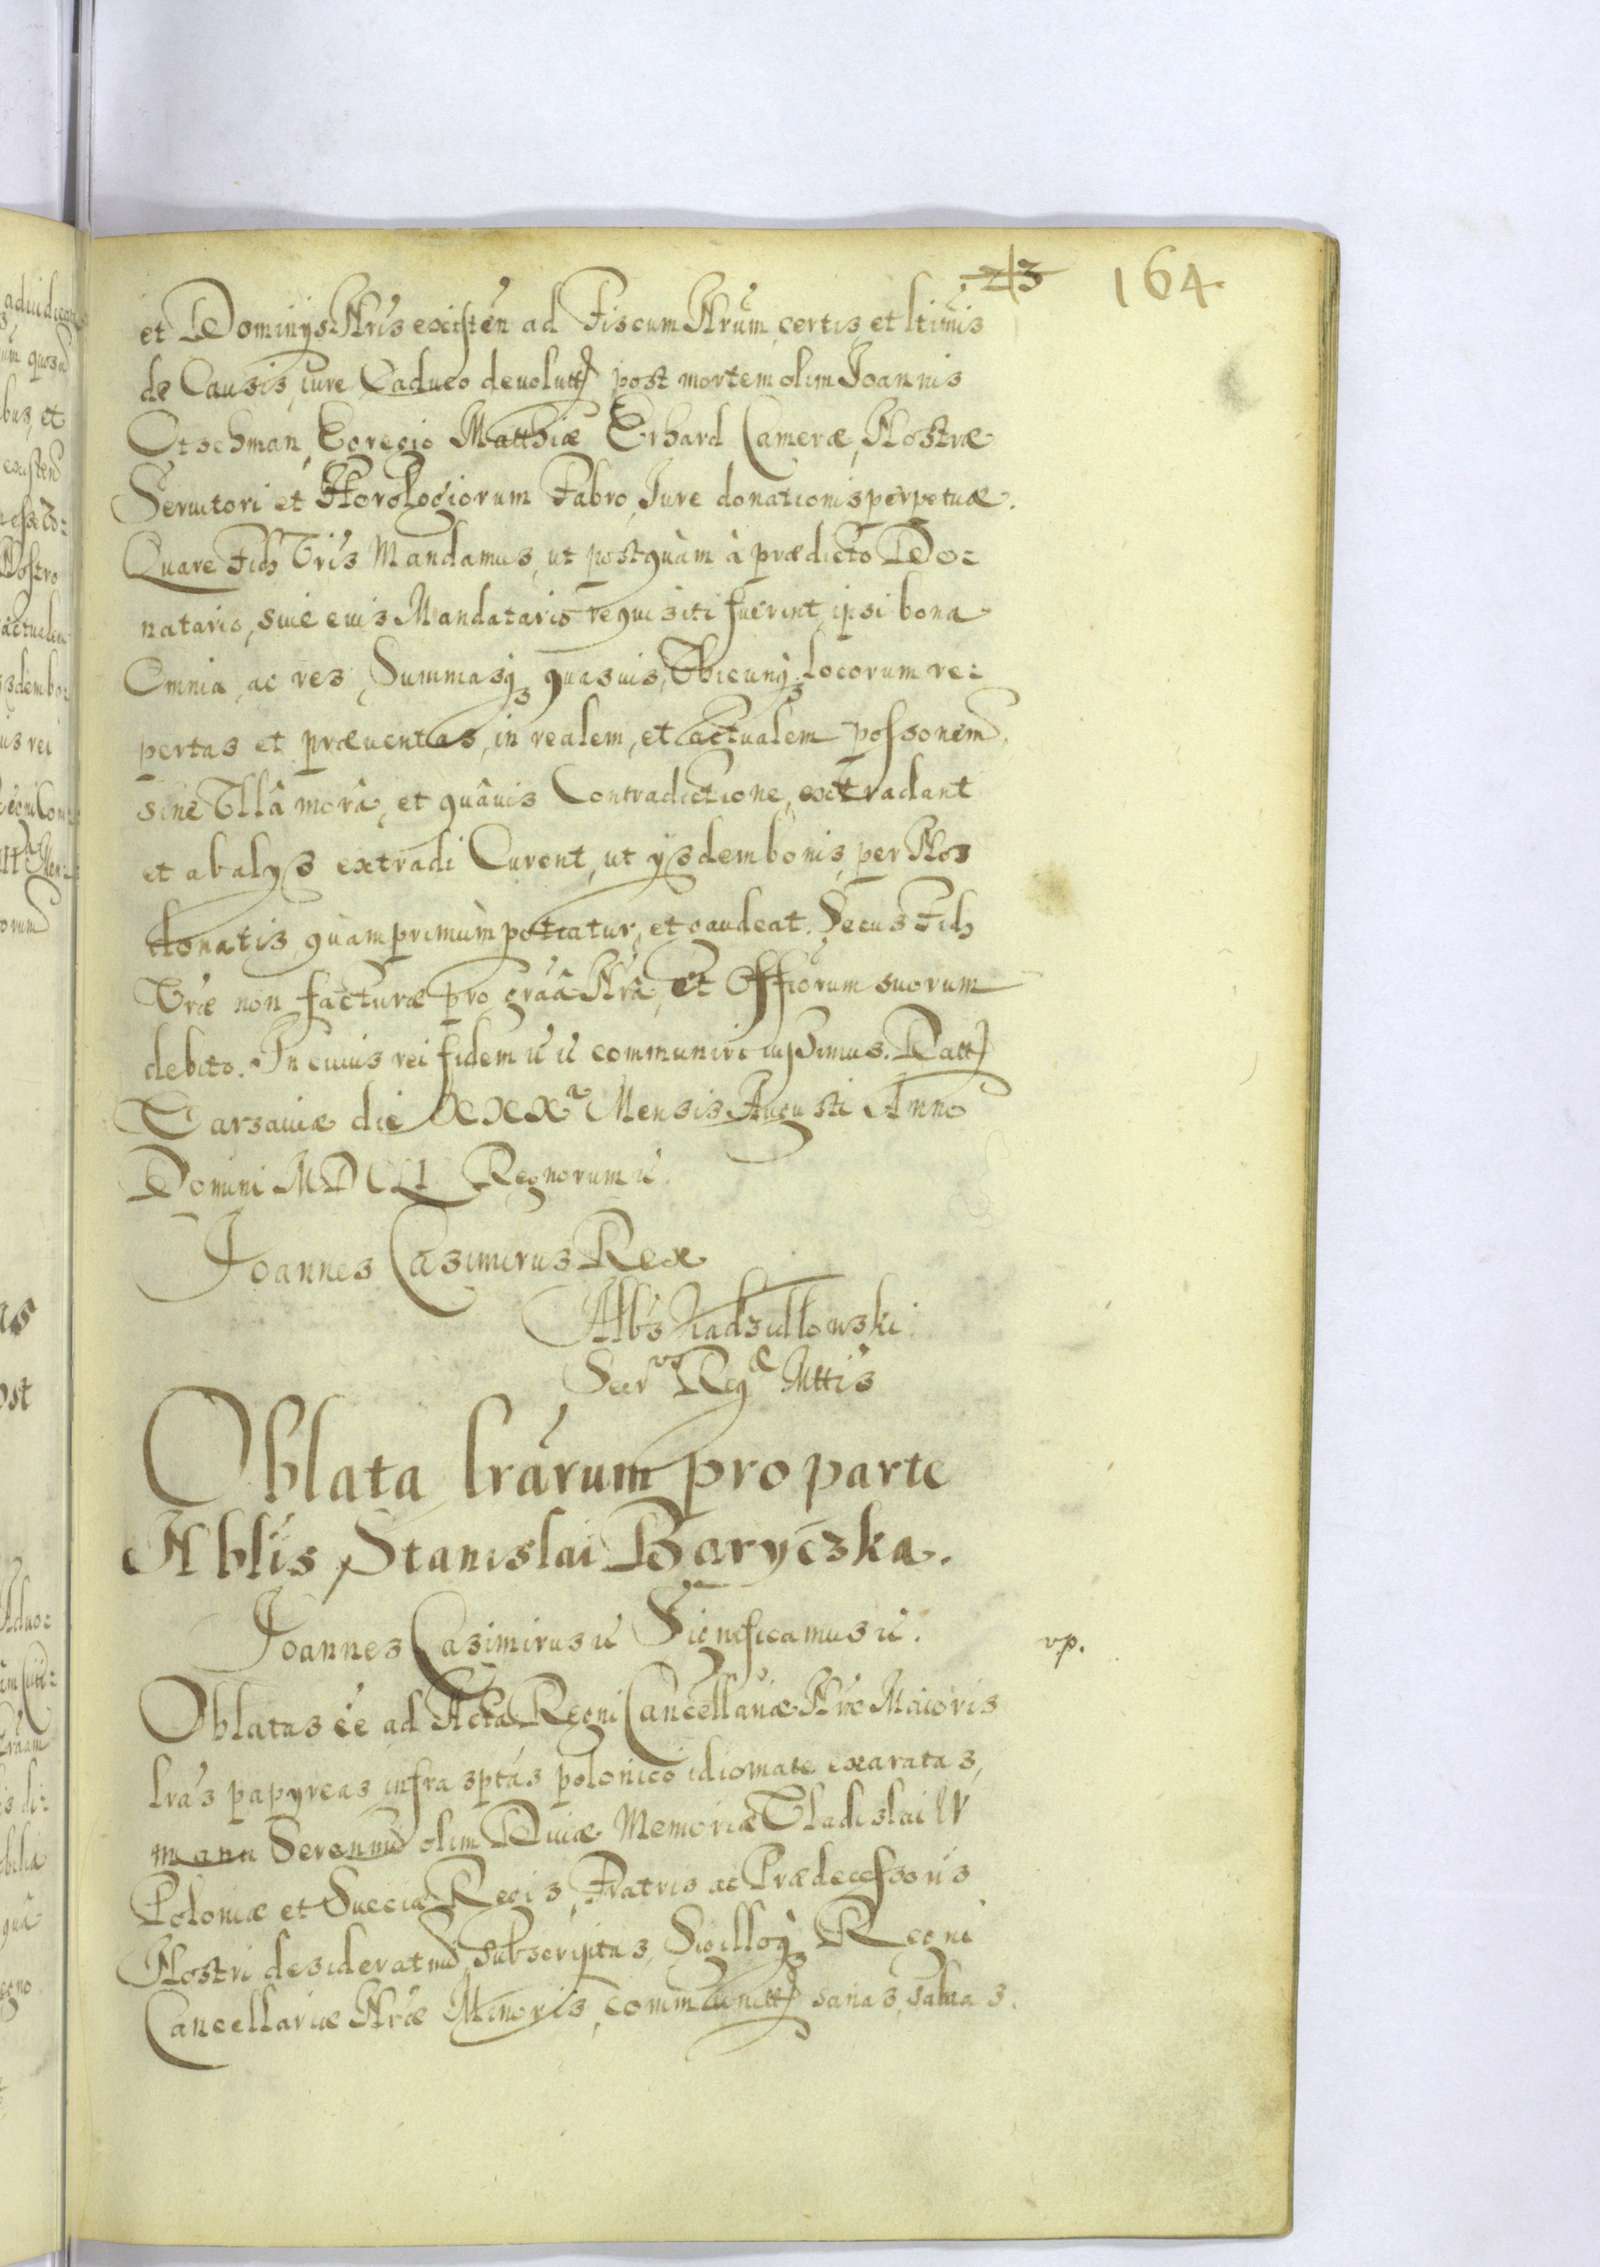 213 164
et Dominijs Nris existen ad Fiscum Nrum certis et ltimis
de Causis, iure Caduco deuolutt post mortem olim Joannis
Otschman, Egregio Matthiæ Erhard Cameræ, Nostræ
Seruitori et Horologiorum Fabro, Jure donationis perpetuæ.
Quare Fidb Vris Mandamus, ut postquàm à prædicto Do=
natario, siue eius Mandatario requisiti fuerint, ipsi bona
Omnia, ac res, Summasq quasuis, Vbicunq locorum re=
pertas et præuentas, in realem, et actualem possonem
sine Vllâ morâ, et quâuis Contradictione, extradant
et ab alys extradi Curent, ut ysdem bonis, per Nos
donatis, quàm primùm potiatur, et gaudeat. Secus Fidb
Vræ non facturæ pro graâ Nrâ, Et Offiorum suorum
debito. In cuius rei fidem &c &c communiri iussimus. Datt
Varsauiæ die XXXa Mensis Augusti Anno
Domini MDCLI Regnorum &c.
Joannes Casimirus Rex
Albs Kadzidłowski
Secrus Regæ Mttis
Oblata lrarum pro parte
Nblis Stanislai Baryczka.
Joannes Casimirus &c Significamus &c.
vp.
Oblatas ee ad Acta Regni Cancellariæ Nræ Maioris
lras papyreas infra sptas polonico idiomate exaratas,
manu Serenmi olim Diuæ Memoriæ Vladislai IV
Poloniæ et Sueciæ Regis, Fratris ac Prædecessoris
Nostri desideratmi Subscriptas, Sigilloq Regni
Cancellariæ Nræ Minoris, communitt sanas, saluas.